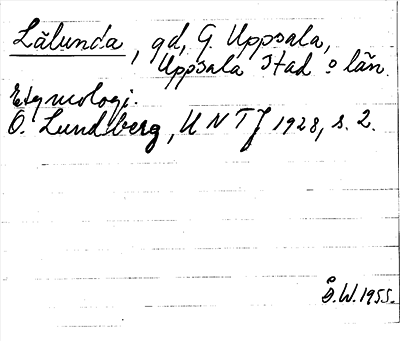 Lälunda, gd, G. Uppsala,
Uppsala stad o län.
Etymologi.
O. Lundberg, UNTJ 1928, s. 2.
Å.W. 1955.